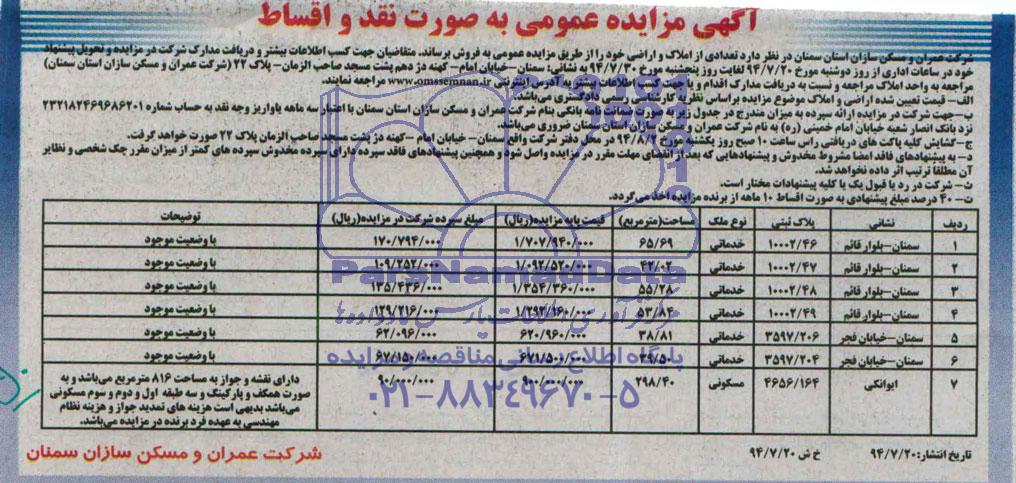 آگهی مزایده عمومی به صورت نقد و اقساط
شرکت عمران و مسکن سازان استان سمنان در نظر دارد تعدادی از املاک و اراضی خود را از طریق مزایده عمومی به فروش برساند. متقاضیان جهت کسب اطلاعات بیشتر و دریافت مدارک شرکت در مزایده و تحویل پیشنهاد
خود در ساعات اداری از روز دوشنبه مورخ ۹۴/۷/۲۰ لغایت روز پنجشنبه مورخ ۹۴/۷/۳۰ به نشانی: سمنان-خیابان امام-کهنه دژ دهم پشت مسجد صاحب الزمان- پلاک ۲۲ (شرکت عمران و مسکن سازان استان سمنان)
مراجعه به واحد املاک مراجعه و نسبت به دریافت مدارک اقدام و یا جهت کسب اطلاعات بیشتر به آدرس اینترنتی www.omssemnan.ir مراجعه نمایند.
الف- قیمت تعیین شده اراضی و املاک موضوع مزایده براساس نظریه کارشناسی رسمی دادگستری می‌باشد.
ب-جهت شرکت در مزایده ارائه سپرده به میزان مندرج در جدول زیر به صورت ضمانت نامه بانکی بنام شرکت عمران و مسکن سازان استان سمنان با اعتبار سه ماهه یا واریز وجه نقد به حساب شماره ۲۳۲۱۸۲۴۶۹۶۸۶۲۰۱
نزد بانک انصار شعبه خیابان امام خمینی (ره) به نام شرکت عمران و مسکن سازان استان سمنان ضروری می‌باشد.
ج-گشایش کلیه پاکت های دریافتی راس ساعت ۱۰ صبح روز یکشنبه مورخ ۹۴/۸/۳ در محل دفتر شرکت واقع سمنان-خیابان امام-کهنه دژ پشت مسجد صاحب الزمان پلاک ۲۲ صورت خواهد گرفت.
د- به پیشنهادهای فاقد امضا مشروط مخدوش و پیشنهادهایی که بعد از انقضای مهلت مقرر در مزایده واصل شود و همچنین پیشنهادهای فاقد سپرده دارای سپرده مخدوش سپرده های کمتر از میزان مقرر چک شخصی و نظایر
آن مطلقا ترتیب اثر داده نخواهد شد.
ث- شرکت در رد یا قبول یک یا کلیه پیشنهادات مختار است.
ت- ۴۰ درصد مبلغ پیشنهادی به صورت اقساط ۱۰ ماهه از برنده مزایده اخذ می‌گردد.
ردیف نشانی پلاک ثبتی نوع ملک مساحت(مترمربع) قیمت پایه مزایده(ریال) مبلغ سپرده شرکت در مزایده(ریال) توضیحات
۱ سمنان-بلوار قائم ۱۰۰۰۲/۴۶ خدماتی ۶۵/۶۹ ۱/۷۰۷/۹۴۰/۰۰۰ ۱۷۰/۷۹۴/۰۰۰ با وضعیت موجود
۲ سمنان-بلوار قائم ۱۰۰۰۲/۴۷ خدماتی ۴۲/۰۲ ۱/۰۹۲/۵۲۰/۰۰۰ ۱۰۹/۲۵۲/۰۰۰ با وضعیت موجود
۳ سمنان-بلوار قائم ۱۰۰۰۲/۴۸ خدماتی ۵۵/۲۸ ۱/۳۵۴/۳۶۰/۰۰۰ ۱۳۵/۴۳۶/۰۰۰ با وضعیت موجود
۴ سمنان-بلوار قائم ۱۰۰۰۲/۴۹ خدماتی ۵۳/۸۴ ۱/۲۹۲/۱۶۰/۰۰۰ ۱۲۹/۲۱۶/۰۰۰ با وضعیت موجود
۵ سمنان-خیابان فجر ۳۵۹۷/۲۰۶ خدماتی ۳۸/۸۱ ۶۲۰/۹۶۰/۰۰۰ ۶۲/۰۹۶/۰۰۰ با وضعیت موجود
۶ سمنان-خیابان فجر ۳۵۹۷/۲۰۴ خدماتی ۳۹/۵۰ ۶۷۱/۵۰۰/۰۰۰ ۶۷/۱۵۰/۰۰۰ با وضعیت موجود
۷ ایوانکی ۴۶۵۶/۱۶۴ مسکونی ۲۹۸/۴۰ ۹۰۰/۰۰۰/۰۰۰ ۹۰/۰۰۰/۰۰۰ دارای نقشه و جواز به مساحت ۸۱۶ مترمربع می‌باشد و به
صورت همکف و پارکینگ و سه طبقه اول و دوم و سوم مسکونی
می‌باشد بدیهی است هزینه های تمدید جواز و هزینه نظام
مهندسی به عهده فرد برنده در مزایده می‌باشد.
ParsNamadData
پایگاه اطلاع رسانی مناقصه و مزایده
۰۲۱-۸۸۳۴۹۶۷۰-۵
تاریخ انتشار: ۹۴/۷/۲۰ خ ش ۹۴/۷/۲۰
شرکت عمران و مسکن سازان سمنان